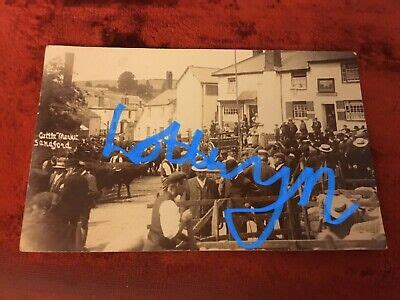 Cattle Market
Sandford.
Lottwyn